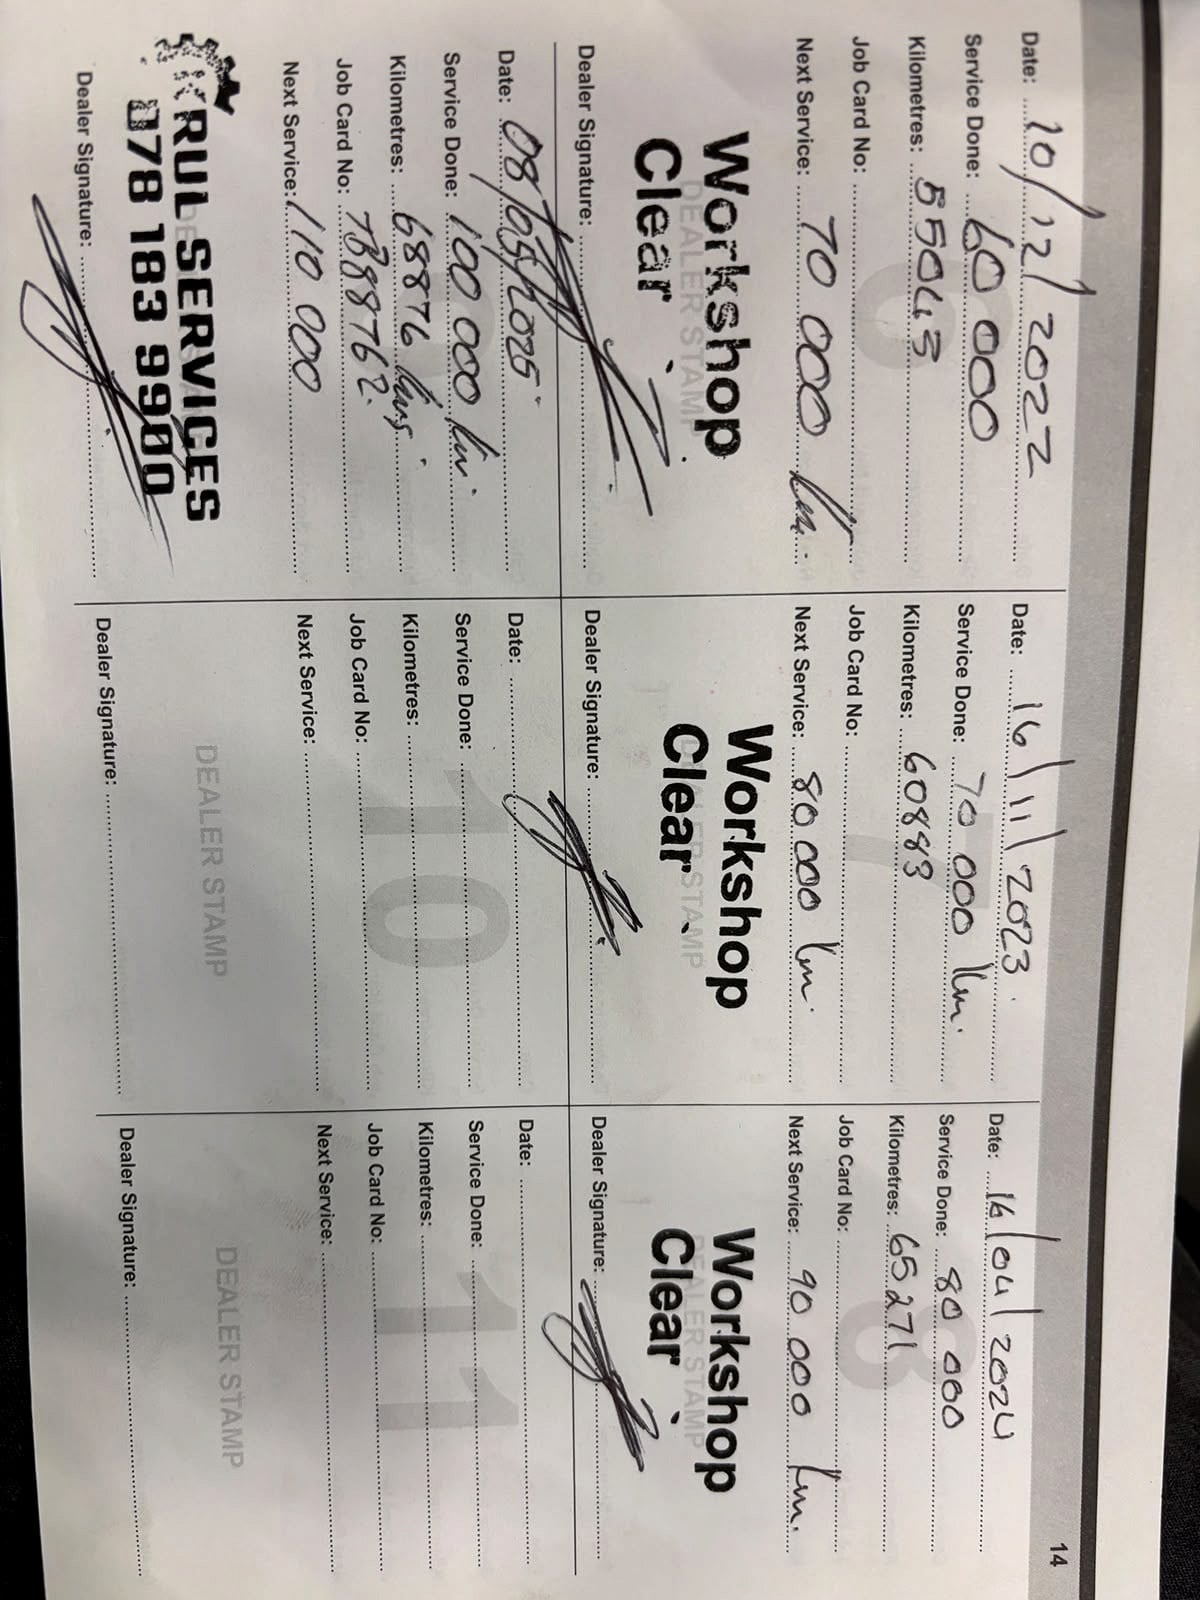 14
Date: 10/12/2022
Service Done: 60 000
Kilometres: 55043
Job Card No:
Next Service: 70 000 km.
Workshop
Clear
DEALER STAMP
Dealer Signature:
Date: 16/11/2023
Service Done: 70 000 km.
Kilometres: 60883
Job Card No:
Next Service: 80 000 km.
Workshop
Clear
DEALER STAMP
Dealer Signature:
Date: 16/04/2024
Service Done: 80 000
Kilometres: 65271
Job Card No:
Next Service: 90 000 km.
Workshop
Clear
DEALER STAMP
Dealer Signature:
Date: 08/05/2025
Service Done: 100 000 km.
Kilometres: 68876 kms
Job Card No:
Next Service: 110 000
KRUL SERVICES
078 183 9900
Dealer Signature:
10
Date:
Service Done:
Kilometres:
Job Card No:
Next Service:
DEALER STAMP
Dealer Signature:
11
Date:
Service Done:
Kilometres:
Job Card No:
Next Service:
DEALER STAMP
Dealer Signature: